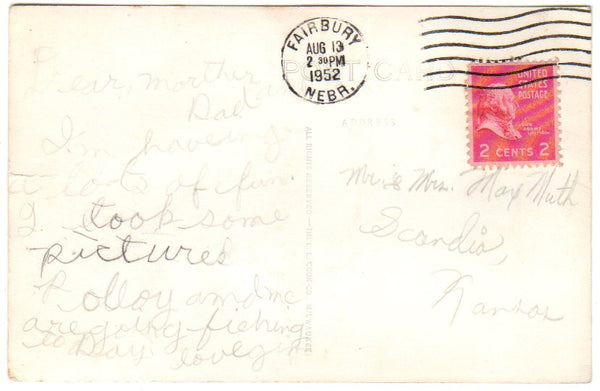 FAIRBURY
AUG 13
2 30 PM
1952
NEBR.
POST CARD
ADDRESS
UNITED
STATES
POSTAGE
JOHN
ADAMS
2 CENTS 2
Dear, morther
Dad
I'm haveing
a lots of fun.
I took some
pictures
P olloy and me
are going fiching
to Day. love
Mr. & Mrs. Max Muth
Scandia,
Kansas
ALL RIGHTS RESERVED
MILWAUKEE